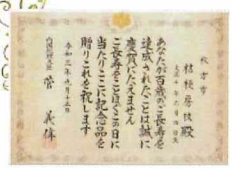 枚方市
殿
あなたが百歳のご長寿を
達成されたことは誠に
慶賀にたえません
ご長寿をことほぐこの日に
当たりここに記念品を
贈りこれを祝します
令和三年九月十五日
内閣総理大臣 菅 義偉